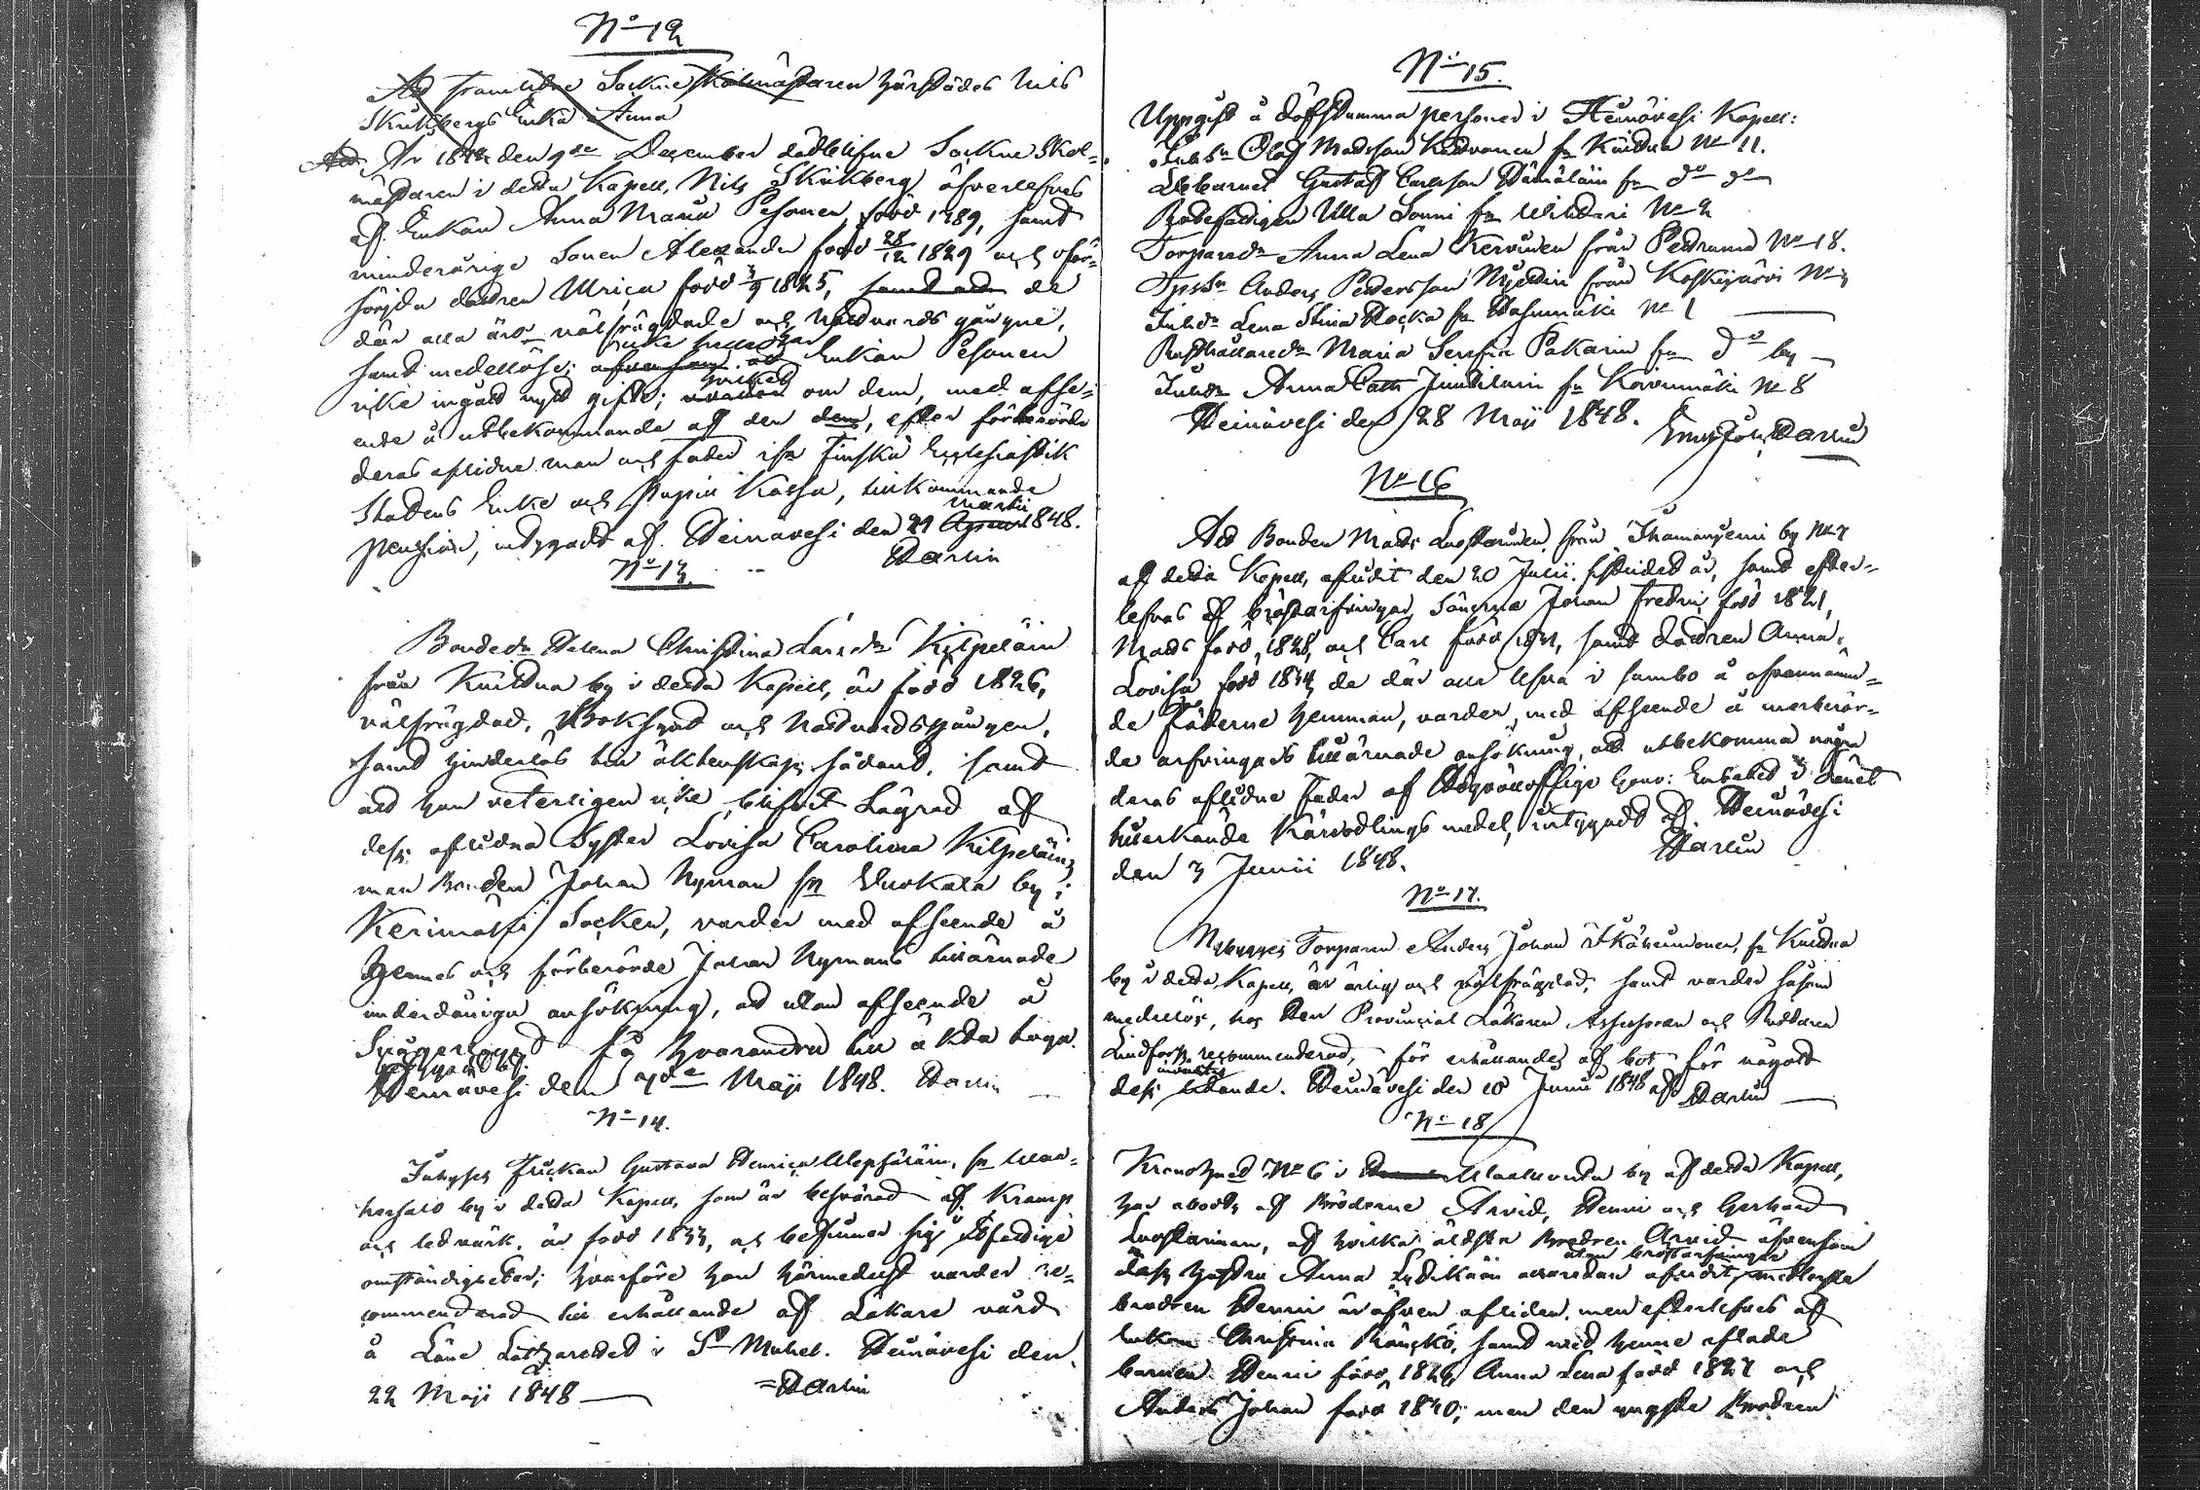 No 12
Att framlidne Sockne Skolmästaren härstädes Nils
Skukbergs Enka Anna
Att År 1842 den 9de December dödblifne Sockne Skol-
mästaren i detta Kapell, Nils Skukberg öfverlefves
af Enkan Anna Maria Pesonen, född 1789, samt
minderårige Sonen Alexander född 28/12 1829 och oför-
sörjda dottren Ulrica född 3/9 1825, samt att de
där alla äro välfrägdade och Nattvards gångne,
samt medellöse; icke heller har Enkan Pesonen
icke ingått nytt gifte; hvilket om dem, med afse-
ende å utbekommande af den dem, efter förberörde
deras aflidne man och fader ifrån Finska Ecclesiastik
Stadens Enke och Pupill Kassa, tillkommande
martii
pension, intygadt af. Heinävesi den 21 April 1848.
No 13. Harlin
Bondedr Helena Christina Larsdr Kilpeläin
från Kuittua by i detta Kapell, är född 1826,
välfrägdad, Boksynt och Nattvardsgången,
samt hinderlös till äktenskaps sådant, samt
att hon veterligen icke blifvit Lägrad af
dess aflidna Syster Lovisa Carolina Kilpeläins
man Bonden Johan Nyman fn Vuokala by i
Kerimäki Socken, varder med afseende å
Hennes och förberörde Johan Nymans tillärnade
underdåniga ansökning, att utan afseende å
Svågerskap få hvarandra till äkta taga.
intygadt af.
Heinävesi den 7de Maji 1848. Harlin
No 14.
Inhyses flickan Gustava Henrica Alepsäläin, fn
by i detta Kapell, som är besvärad af Kramp
och ledvärk, är född 1833, och befinner sig i utfattige
omständigheter; hvarföre hon härmedelst varder re-
commenderad till erhållande af Läkare vård
å Läne Lazarettet i St Michel. Heinävesi den
22 Maji 1848 Harlin
No 15.
Uppgift å döfstumma personer i Heinävesi Kapell:
Inhsn Olof Madsson Kettunen fn Kuittua No 11.
Gustaf Carlsson Hämäläin fn do do
Ulla Sonni fn Vihtari No 2
Torparedr Anna Lena Kervinen från Petruma No 18.
Tpssn Anders Pettersson Nyktiri från Koskijärvi No 3
Inhdr Lena Stina Hocka fn Hasumäki No 1
Rusthållaredr Maria Serafia Pakarin fn do by
Inhdr Anna Cath Jumtilain fn Koivumäki No 8
Heinävesi den 28 Maji 1848. Harlin
No 16
Att Bonden Mads Luostarinen, från Ihamaniemi by No 7
af detta Kapell, aflidit den 20 Julii sistlidet år, samt efter-
lefves af bröstarfvingar, Sönerna Johan Fredric född 1821,
Mads född 1828, och Carl född 1831, samt dottren Anna
Lovisa född 1834, de där alla lefva i sambo å ofvannämn-
de fäderne hemman, varder, med afseende å merberör-
de arfvingars tillärnade ansökning, att utbekomma några
deras aflidne Fader af Höglofliga Gouv: Embetet i länet
tillerkände Kärrodlings medel, intygadt af. Heinävesi
den 3 Junii 1848. Harlin
No 17.
Inhysses Torparen Anders Johan Räisänen, fn Kuittua
by i detta Kapell, är ärlig och välfrägdad, samt varder såsom
medellös, hos Herr Provincial Läkaren Assessoren och Riddaren
Lindfors recommenderad, för erhållande af bot för något
invärtes
dess lidande. Heinävesi den 18 Junii 1848 af Harlin
No 18
Kronohemmanet No 6 i by af detta Kapell,
har åbotts af Bröderne Arvid, Henric och Gerhard
Luostarinen, af hvilka äldsta Brodren Arvid äfvensom
utan bröstarfvingar
dess hustru Anna Lydikäin allaredan aflidit, medlersta
brodren Henric är äfven afliden, men efterlefves af
Enkan Christina Räuckö, samt med henne aflade
barnen Henric född 1826, Anna Lena född 1827 och
Anders Johan född 1840; men den yngsta Brodren